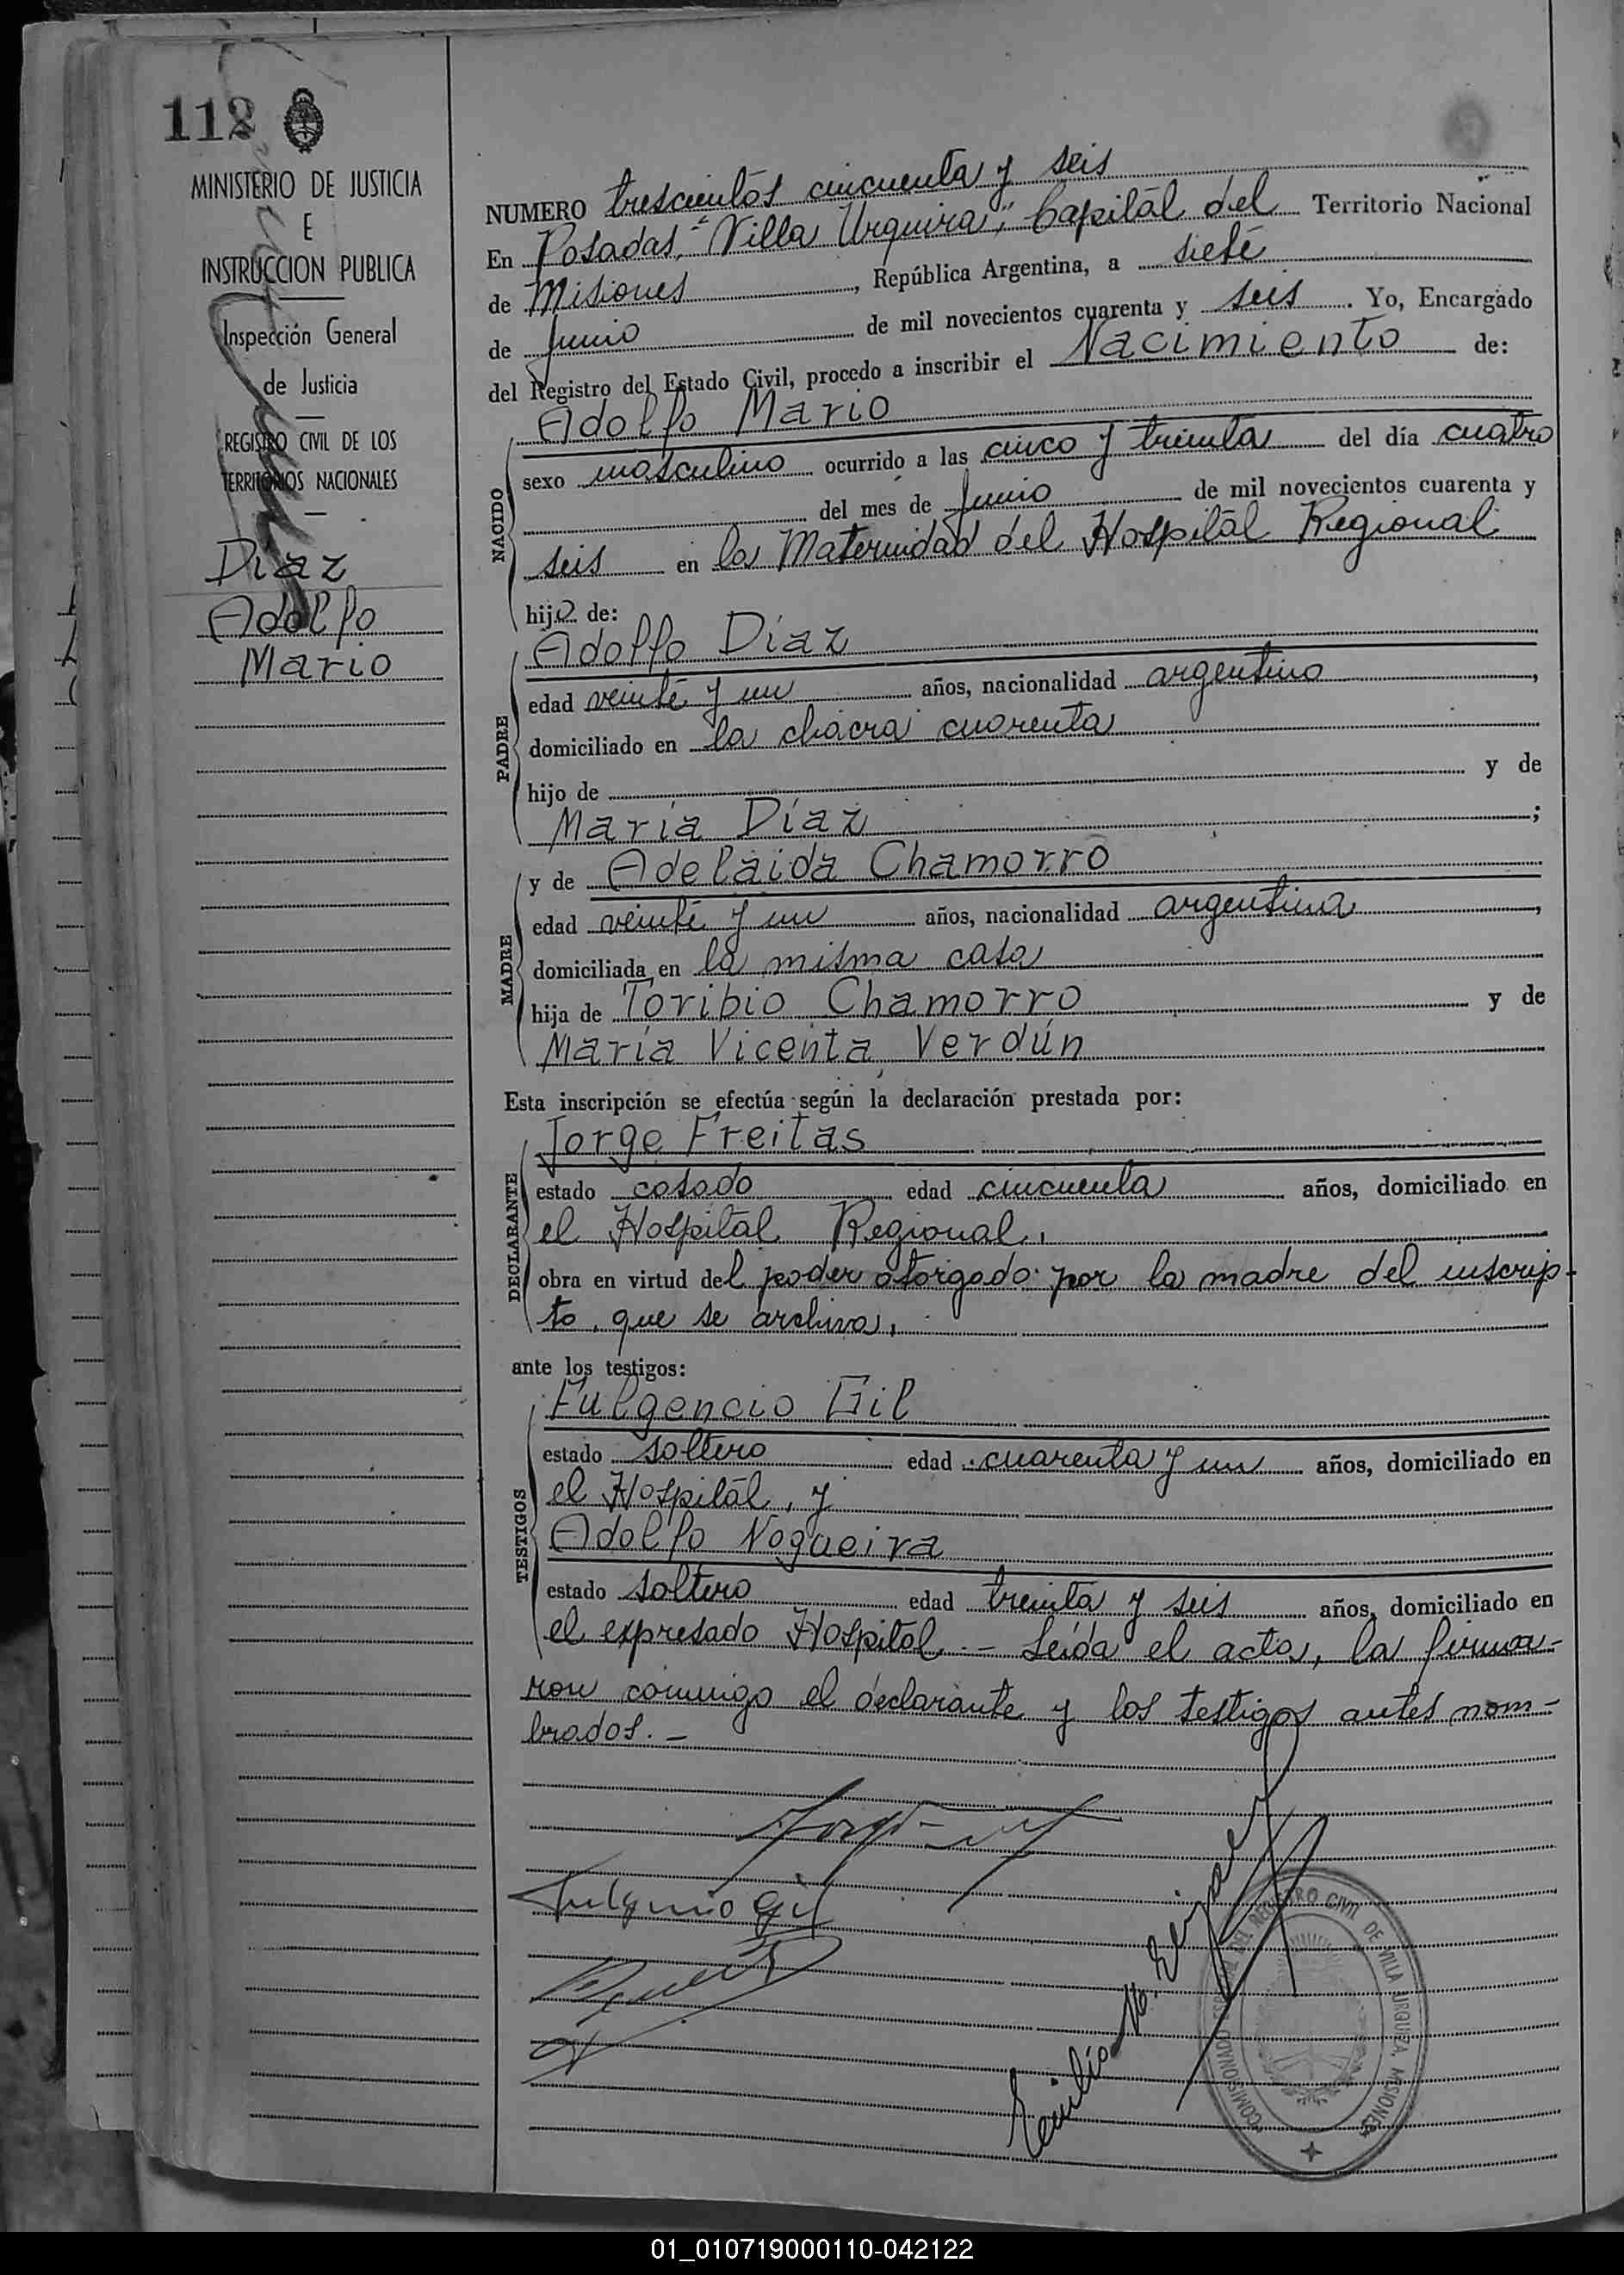 112
MINISTERIO DE JUSTICIA
E
INSTRUCCION PUBLICA
Inspección General
de Justicia
REGISTRO CIVIL DE LOS
TERRITORIOS NACIONALES
Diaz
Adolfo
Mario
NUMERO trescientos cincuenta y seis
En Posadas, "Villa Urquiza", Capital del Territorio Nacional
de Misiones, República Argentina, a siete
de Junio de mil novecientos cuarenta y seis. Yo, Encargado
del Registro del Estado Civil, procedo a inscribir el Nacimiento de:
NACIDO
Adolfo Mario
sexo masculino ocurrido a las cinco y treinta del día cuatro
del mes de Junio de mil novecientos cuarenta y
seis en la Maternidad del Hospital Regional
hijo de:
PADRE
Adolfo Díaz
edad veinte y un años, nacionalidad argentino,
domiciliado en la chacra cuarenta
hijo de y de
María Díaz;
MADRE
y de Adelaida Chamorro
edad veinte y un años, nacionalidad argentina,
domiciliada en la misma casa
hija de Toribio Chamorro y de
María Vicenta Verdún
Esta inscripción se efectúa según la declaración prestada por:
DECLARANTE
Jorge Freitas
estado casado edad cincuenta años, domiciliado en
el Hospital Regional,
obra en virtud del poder otorgado por la madre del inscrip-
to, que se archiva,
ante los testigos:
TESTIGOS
Fulgencio Gil
estado soltero edad cuarenta y un años, domiciliado en
el Hospital, y
Adolfo Nogueira
estado soltero edad treinta y seis años, domiciliado en
el expresado Hospital.- Leída el acta, la firma-
ron conmigo el declarante y los testigos antes nom-
brados.-
Fulgencio Gil
Emilio
COMISIONADO ESPECIAL DEL REGISTRO CIVIL DE VILLA URQUIZA, MISIONES
01_010719000110-042122